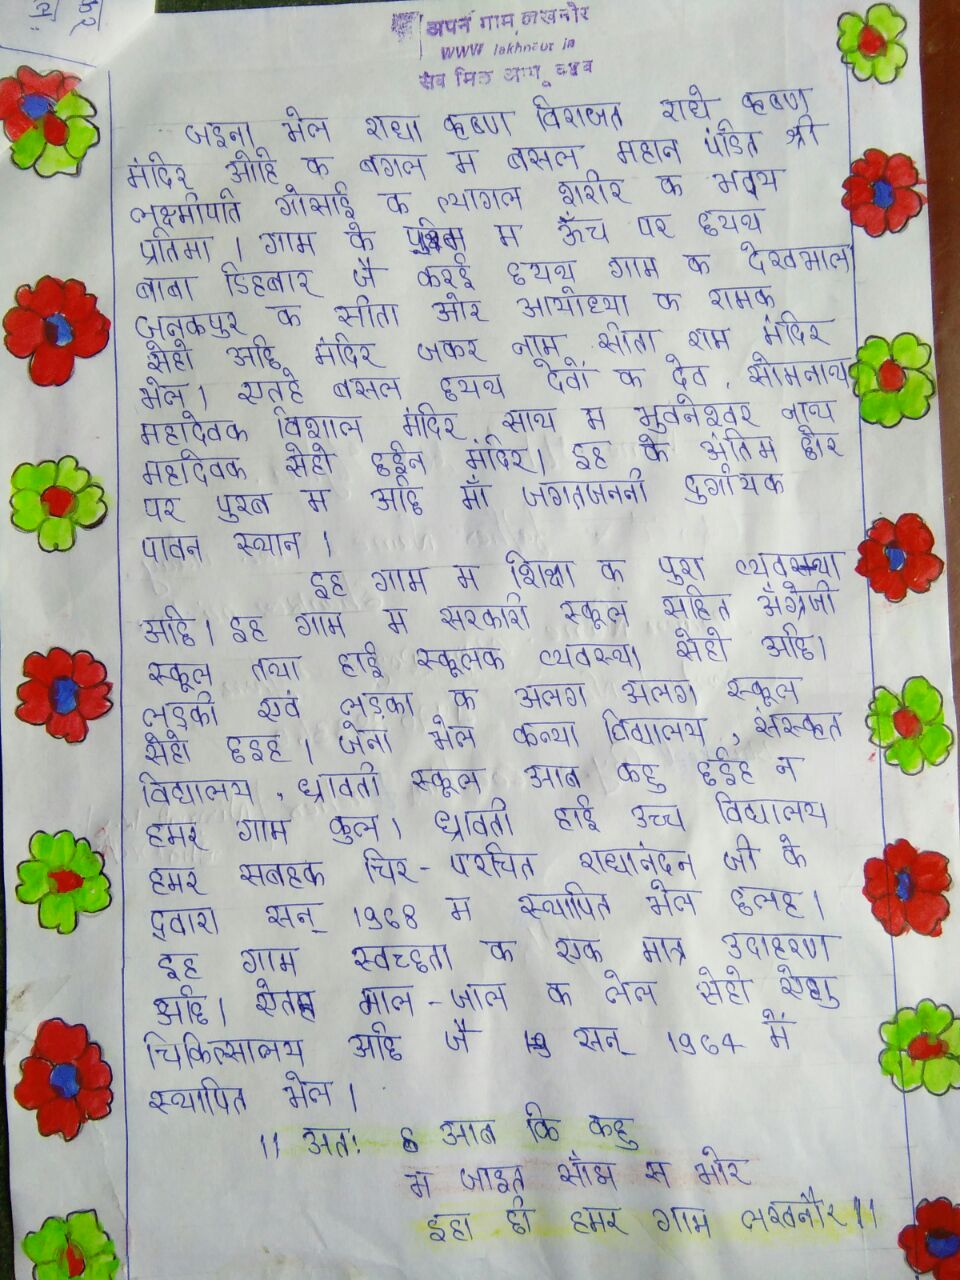 अपन गाम लखनोर
WWW lakhnaur in
सब मिल आगू बढब
जइना भेल राधा कृष्ण विराजत राधे कृष्ण
मंदिर ओहि क बगल म बसल महान पंडित श्री
लक्ष्मीपति गोसाई क त्यागल शरीर क भव्य
प्रतिमा । गाम के पश्चिम म ऊँच पर छथय
बाबा डिहबार जै करई छथय गाम क देखभाल
जनकपुर क सीता ओर आयोध्या क रामक
सेहो अछि मंदिर जकर नाम सीता राम मंदिर
भेल। एतहे बसल छथय देवों क देव, सोमनाथ
महादेवक विशाल मंदिर साथ म भुवनेश्वर नाथ
महादेवक सेहो छईन मंदिर। इह के अंतिम छोर
पर पुरब म अछि माँ जगतजननी दुर्गायक
पावन स्थान ।
इह गाम म शिक्षा क पुरा व्यवस्था
अछि। इह गाम म सरकारी स्कूल सहित अँग्रेजी
स्कूल तथा हाई स्कूलक व्यवस्था सेहो अछि।
लड़की एवं लड़का क अलग अलग स्कूल
सेहो छइह । जेना भेल कन्या विद्यालय, संस्कृत
विद्यालय, ध्रावती स्कूल आब कहु छईह न
हमर गाम कुल। ध्रावती हाई उच्च विद्यालय
हमर सबहक चिर-परचित राधानंदन जी के
द्वारा सन् 1968 म स्थापित भेल छलह।
इह गाम स्वच्छता क एक मात्र उदाहरण
अछि। ऐतह माल-जाल क लेल सेहो पेशु
चिकित्सालय अछि जै सन् 1964 में
स्थापित भेल ।
।। अतः आब कि कहु
म जाइत साँझ स भोर
इहा छी हमर गाम लखनौर।।